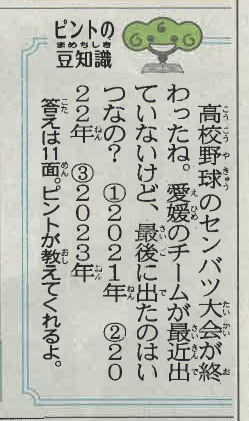 ピントの
豆知識
高校野球のセンバツ大会が終
わったね。愛媛のチームが最近出
ていないけど、最後に出たのはい
つなの？　①2021年　②20
22年　③2023年
答えは11面。ピントが教えてくれるよ。